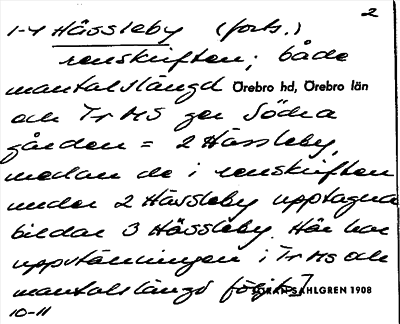 2
1-4 Hässleby (forts.)
renskriften; både
mantalslängd Örebro hd, Örebro län
och Tr MS ger Södra
gården = 2 Hässleby,
medan de i renskriften
under 2 Hässleby upptagna
bildar 3 Hässleby. Här har
uppställningen i Tr Ms och
mantalslängd följts]
SAHLGREN 1908
10-11